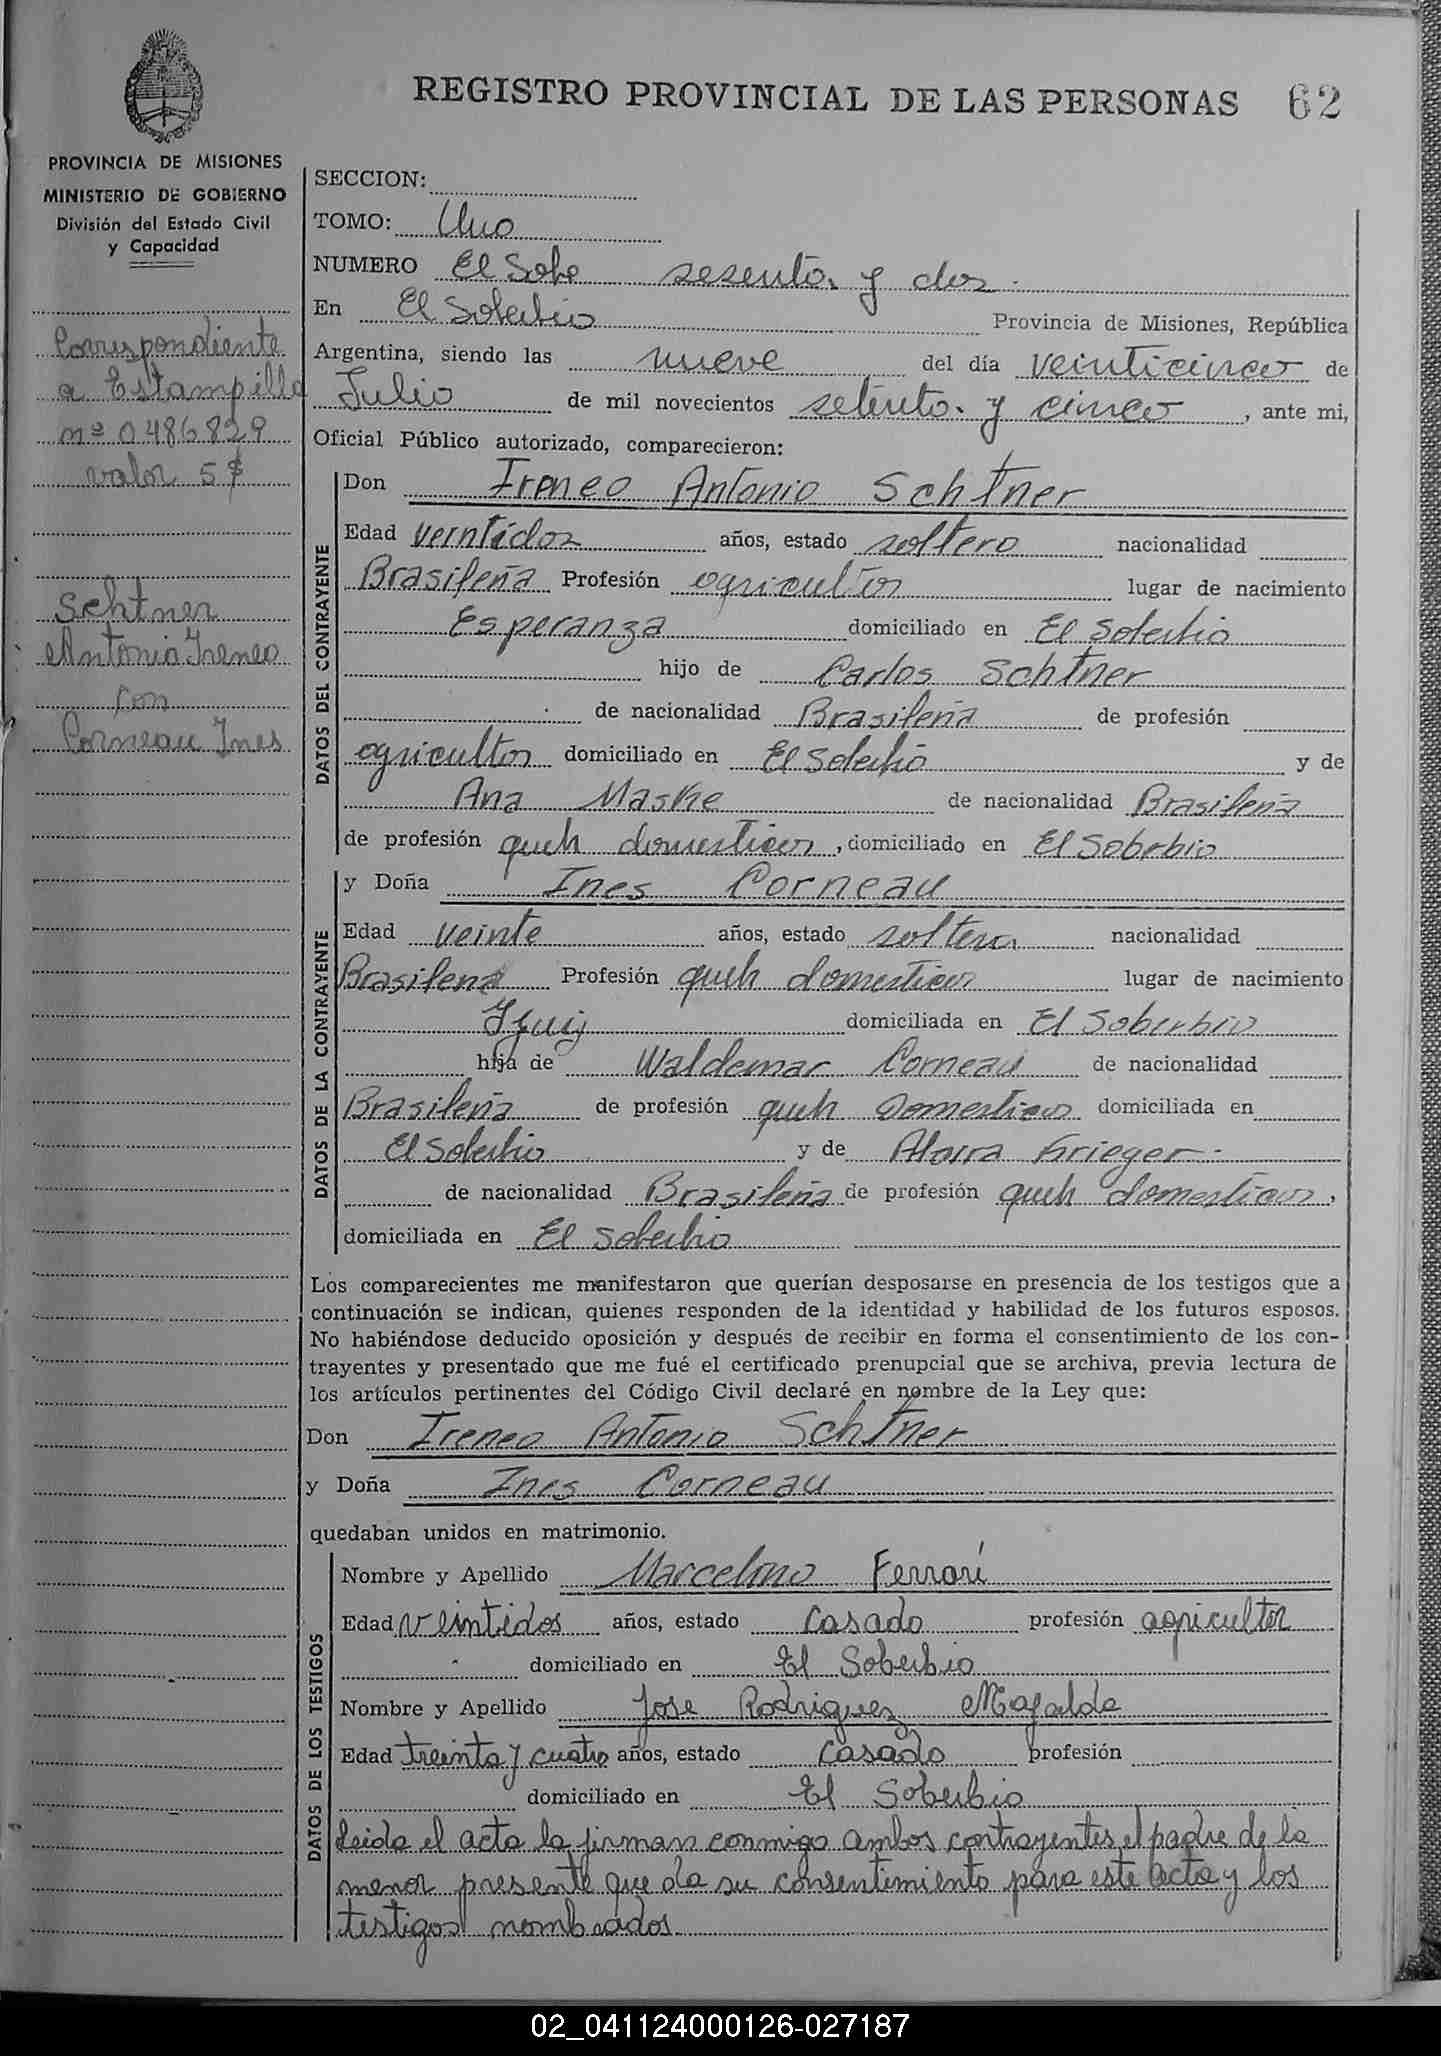 REGISTRO PROVINCIAL DE LAS PERSONAS 62
PROVINCIA DE MISIONES
MINISTERIO DE GOBIERNO
División del Estado Civil
y Capacidad
Correspondiente
a Estampilla
nº 0486829
valor 5$
Schtner
Antonio Ireneo
con
Corneau Ines
SECCION:
TOMO: Uno
NUMERO El Sobe sesenta y dos
En El Soberbio Provincia de Misiones, República
Argentina, siendo las nueve del día veinticinco de
Julio de mil novecientos setenta y cinco, ante mi,
Oficial Público autorizado, comparecieron:
DATOS DEL CONTRAYENTE
Don Ireneo Antonio Schtner
Edad veintidos años, estado soltero nacionalidad
Brasileña Profesión agricultor lugar de nacimiento
Esperanza domiciliado en El Soberbio
hijo de Carlos Schtner
de nacionalidad Brasileña de profesión
agricultor domiciliado en El Soberbio y de
Ana Maske de nacionalidad Brasileña
de profesión queh domesticos, domiciliado en El Soberbio
DATOS DE LA CONTRAYENTE
y Doña Ines Corneau
Edad veinte años, estado soltera nacionalidad
Brasilena Profesión queh domesticos lugar de nacimiento
domiciliada en El Soberbio
hija de Waldemar Corneau de nacionalidad
Brasileña de profesión queh Domesticos domiciliada en
El Soberbio y de Krieger
de nacionalidad Brasileña de profesión queh domesticos,
domiciliada en El Soberbio
Los comparecientes me manifestaron que querían desposarse en presencia de los testigos que a
continuación se indican, quienes responden de la identidad y habilidad de los futuros esposos.
No habiéndose deducido oposición y después de recibir en forma el consentimiento de los con-
trayentes y presentado que me fué el certificado prenupcial que se archiva, previa lectura de
los artículos pertinentes del Código Civil declaré en nombre de la Ley que:
Don Ireneo Antonio Schtner
y Doña Ines Corneau
quedaban unidos en matrimonio.
DATOS DE LOS TESTIGOS
Nombre y Apellido Marcelino Ferrari
Edad veintidos años, estado casado profesión agricultor
domiciliado en El Soberbio
Nombre y Apellido Jose Rodriguez Mafalda
Edad treinta y cuatro años, estado casado profesión
domiciliado en El Soberbio
Leida el acta la firman conmigo ambos contrayentes, el padre de la
menor presente que da su consentimiento para este acto y los
testigos nombrados
02_041124000126-027187